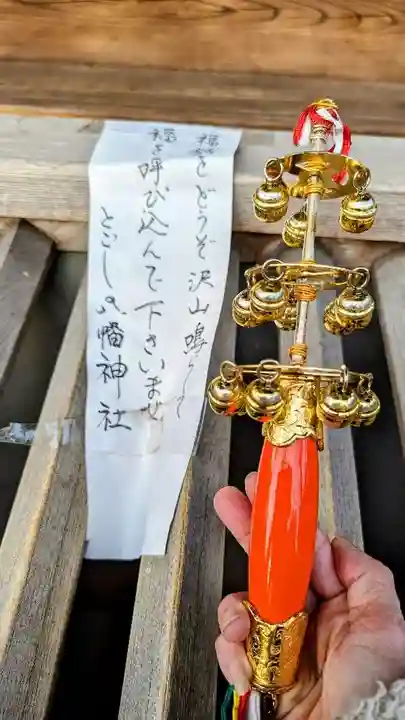 福をどうぞ沢山鳴らして
福を呼び込んで下さいませ
とごし八幡神社